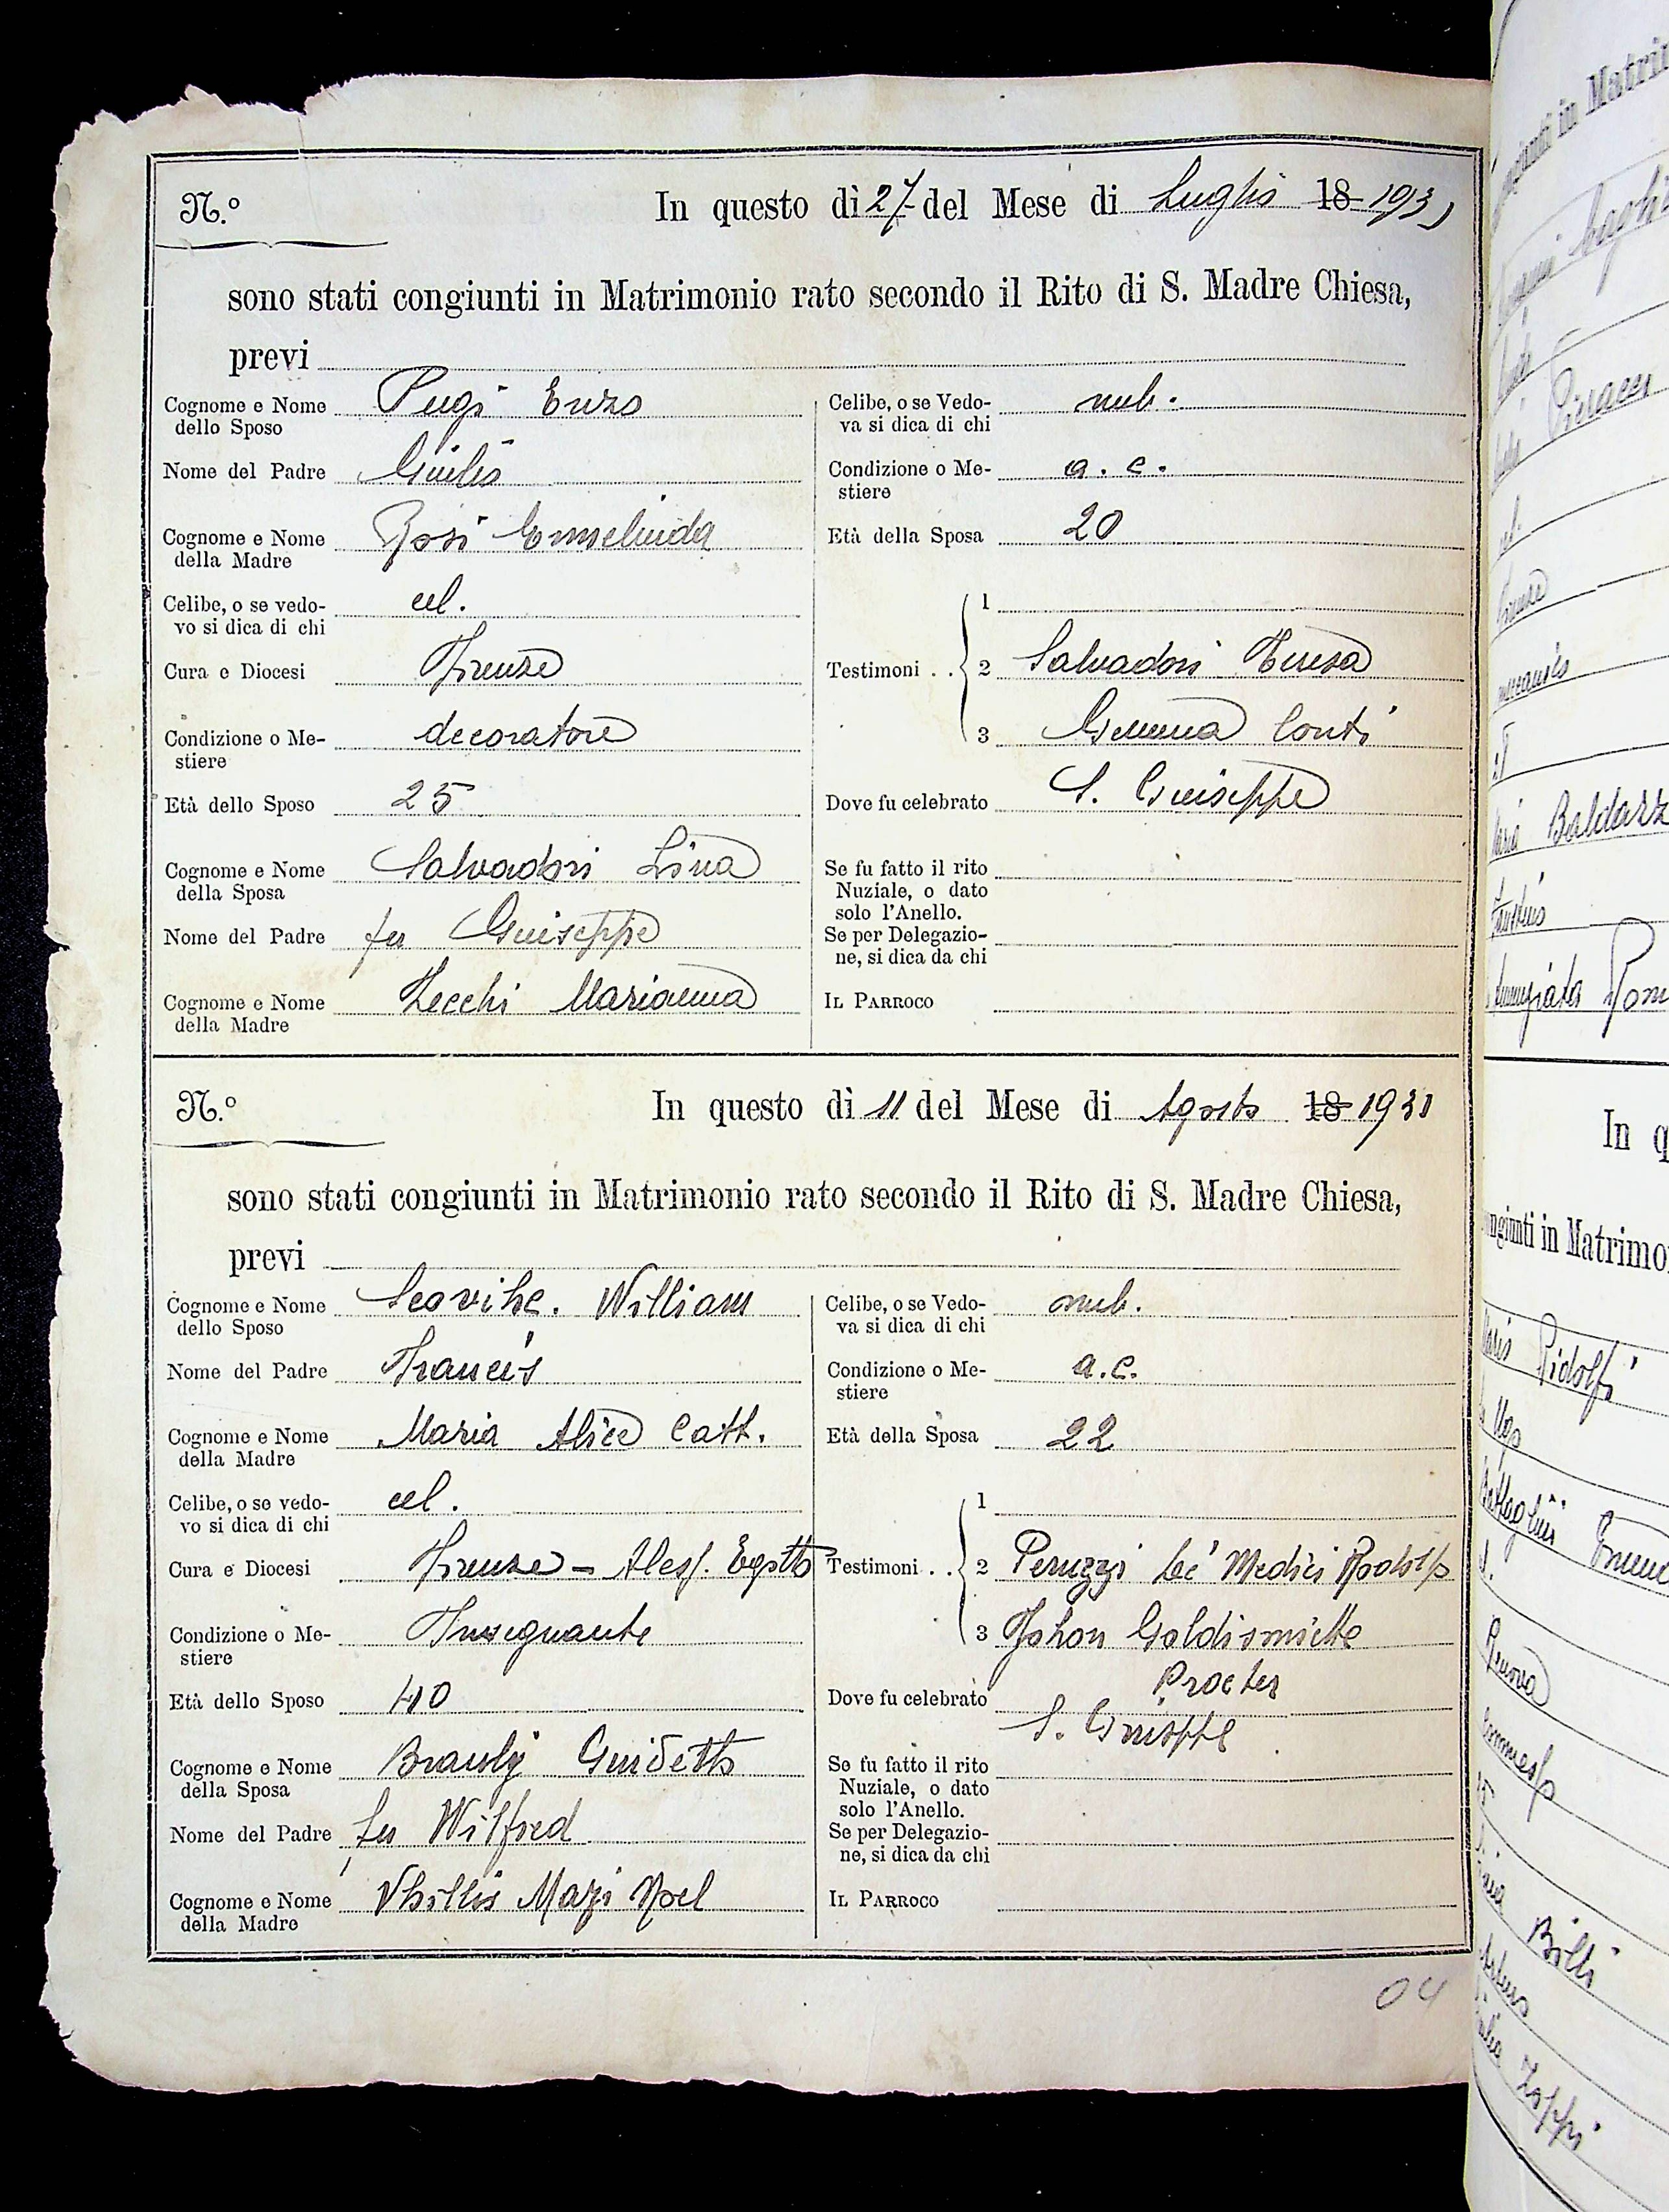 N.º In questo dì 27 del Mese di Luglio 18 1931
sono stati congiunti in Matrimonio rato secondo il Rito di S. Madre Chiesa,
previ
Cognome e Nome dello Sposo Pugi Enzo
Nome del Padre Giulio
Cognome e Nome della Madre Rosi Ermelinda
Celibe, o se vedovo si dica di chi cel.
Cura e Diocesi Firenze
Condizione o Mestiere decoratore
Età dello Sposo 25
Cognome e Nome della Sposa Salvadori Lina
Nome del Padre fu Giuseppe
Cognome e Nome della Madre Zecchi Marianna
Celibe, o se Vedova si dica di chi nub.
Condizione o Mestiere a. c.
Età della Sposa 20
Testimoni . . 1
2 Salvadori Teresa
3 Gemma Conti
Dove fu celebrato S. Giuseppe
Se fu fatto il rito Nuziale, o dato solo l'Anello.
Se per Delegazione, si dica da chi
IL PARROCO
N.º In questo dì 11 del Mese di Agosto 18 1931
sono stati congiunti in Matrimonio rato secondo il Rito di S. Madre Chiesa,
previ
Cognome e Nome dello Sposo William
Nome del Padre Francis
Cognome e Nome della Madre Maria Alice Catt.
Celibe, o se vedovo si dica di chi cel.
Cura e Diocesi Firenze - Aless. Egitto
Condizione o Mestiere Insegnante
Età dello Sposo 40
Cognome e Nome della Sposa Guidetto
Nome del Padre fu Wilfred
Cognome e Nome della Madre Phillis
Celibe, o se Vedova si dica di chi nub.
Condizione o Mestiere a.c.
Età della Sposa 22
Testimoni . . 1
2 Peruzzi De' Medici Rodolfo
3 Johon Goldismitte
Procter
Dove fu celebrato S. Giuseppe
Se fu fatto il rito Nuziale, o dato solo l'Anello.
Se per Delegazione, si dica da chi
IL PARROCO
04